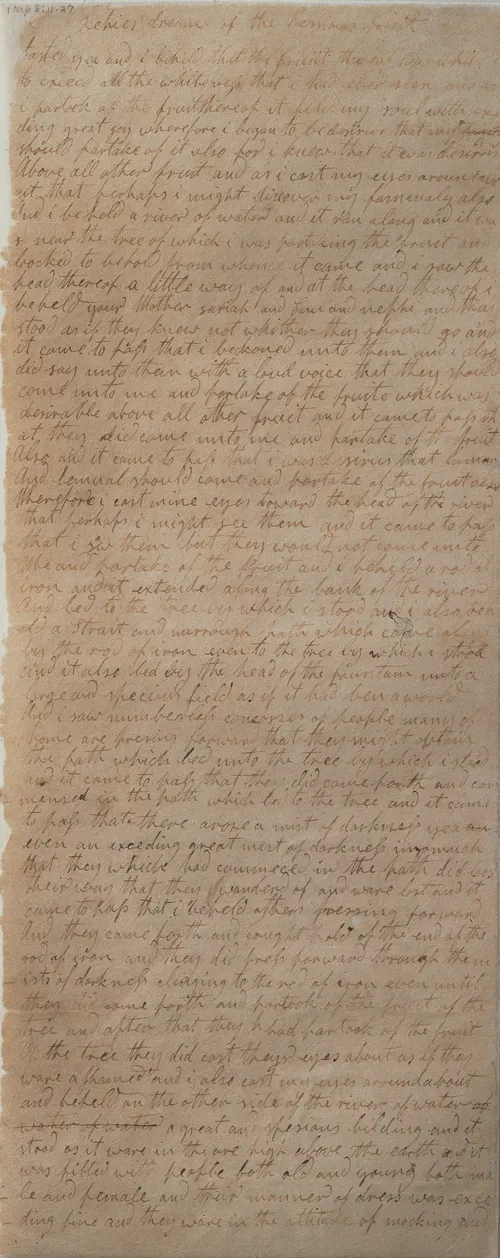 1 Nep 8:11-27
Lehies dream of the
tasted yea and i beheld that the fruiit thereof was whit
to exceed all the whiteness that i had ever seen and as
i partook of the fruit thereof it fild my soul with exe
ding great joy wherefore i began to be desirus that my
should partake of it also for i knew that it was desirus
Above all other fruit and as i cast my eyes around
out that perhaps i might discover my fammaly also
And i beheld a river of water and it ran along and it wa
s near the tree of which i was partaking the fruit an
loocked to behold from whence it came and i saw the
head thereof a little way of and at the head thereof i
beheld your Mother sariah and Sam and nephi and they
stood as if they knew not whither they should go and
it came to pass that i beckoned unto them and i also
did say unto them with a loud voice that they should
come unto me and partake of the fruite which was
desirable above all other fruit and it came to pass th
at they did came unto me and partake of the fruit
Also and it came to pass that i was desirus that laman
And lemual should came and partake of the fruit also
Wherefore i cast mine eyes toward the head of the river
that perhaps i might see them and it came to pass
that i saw them but they would not come unto
Me and partake of the fruit and i beheld a rod of
iron and it extended along the bank of the river
And led to the tree by which i stood and i also beh
eld a strait and narrough path which came along
by the rod of iron even to the tree by which i stood
and it also led by the head of the fountain unto a
large and specious field as if it had ben a world
And i saw numberless concorses of people many of
whome are presing forward that they might obtain
the path which led unto the tree by which i stod
and it came to pass that they did came forth and com
mensed in the path which led to the tree and it came
to pass that there arose a mist of darkness yea
even an exceding great mist of darkness insomuch
that they which had commeced in the path did los
their way that they wandered of and ware lost and it
came to pass that i beheld others pressing forward
And they came forth and caught hold of the end of the
rod of iron and they did press forward through the m
ists of darkness clinging to the rod of iron even until
they did come forth and partook of the fruit of the
tree and after that they had partook of the fruit
of the tree they did cast theyr eyes about as if they
ware ashamed and i also cast my eyes aroundabout
and beheld on the other side of the river of water
water of water a great and spesious bilding and it
stood as it ware in the are high above the earth and it
was filled with people both old and young both ma
le and female and their manner of dress was exce
ding fine and they ware in the attitude of mocking and